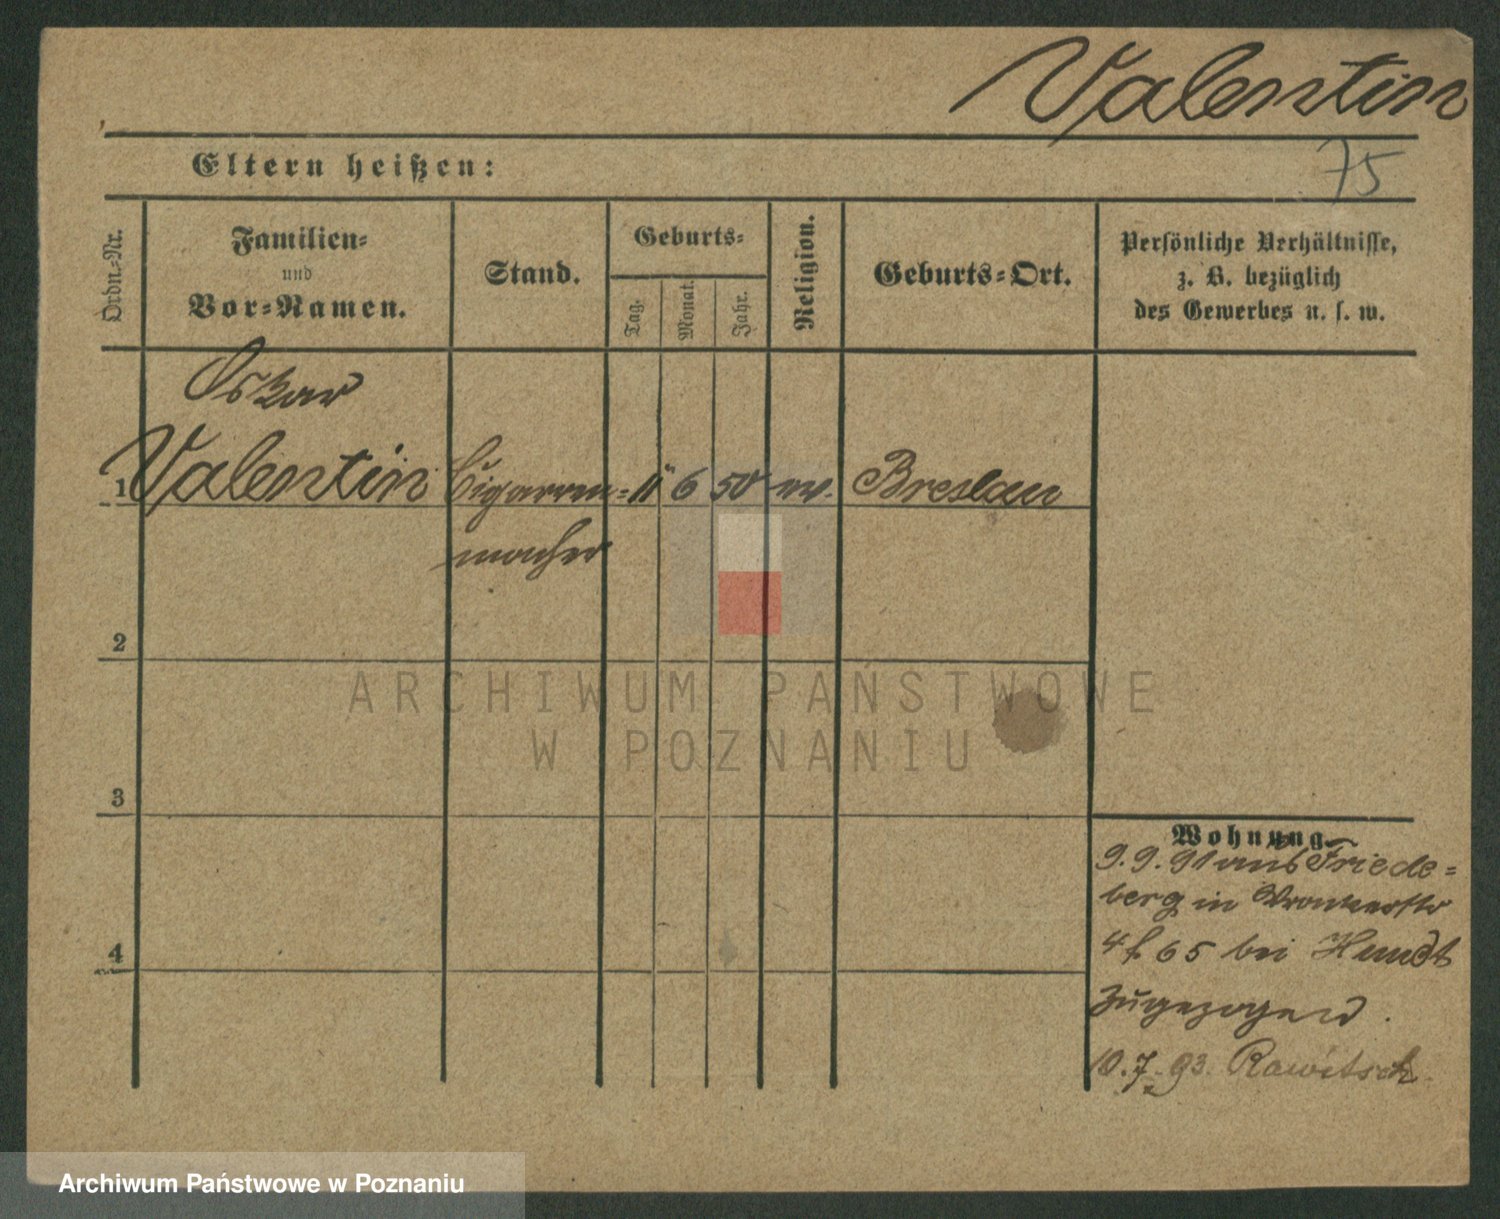 Valentin
Eltern heißen:
75
Ordn.-Nr.
Familien-
und
Vor-Namen.
Stand.
Geburts-
Tag.
Monat.
Jahr.
Religion.
Geburts-Ort.
Persönliche Verhältnisse,
z. B. bezüglich
des Gewerbes u. s. w.
Oskar
1 Valentin Cigarren- 11 6 50 ev. Breslau
macher
2
3
4
Wohnung.
9. 9. 91 aus Friede-
berg in Wronkerstr
4 65 bei Hundt
zugezogen.
10. 7. 93. Rawitsch
ARCHIWUM PAŃSTWOWE
W POZNANIU
Archiwum Państwowe w Poznaniu